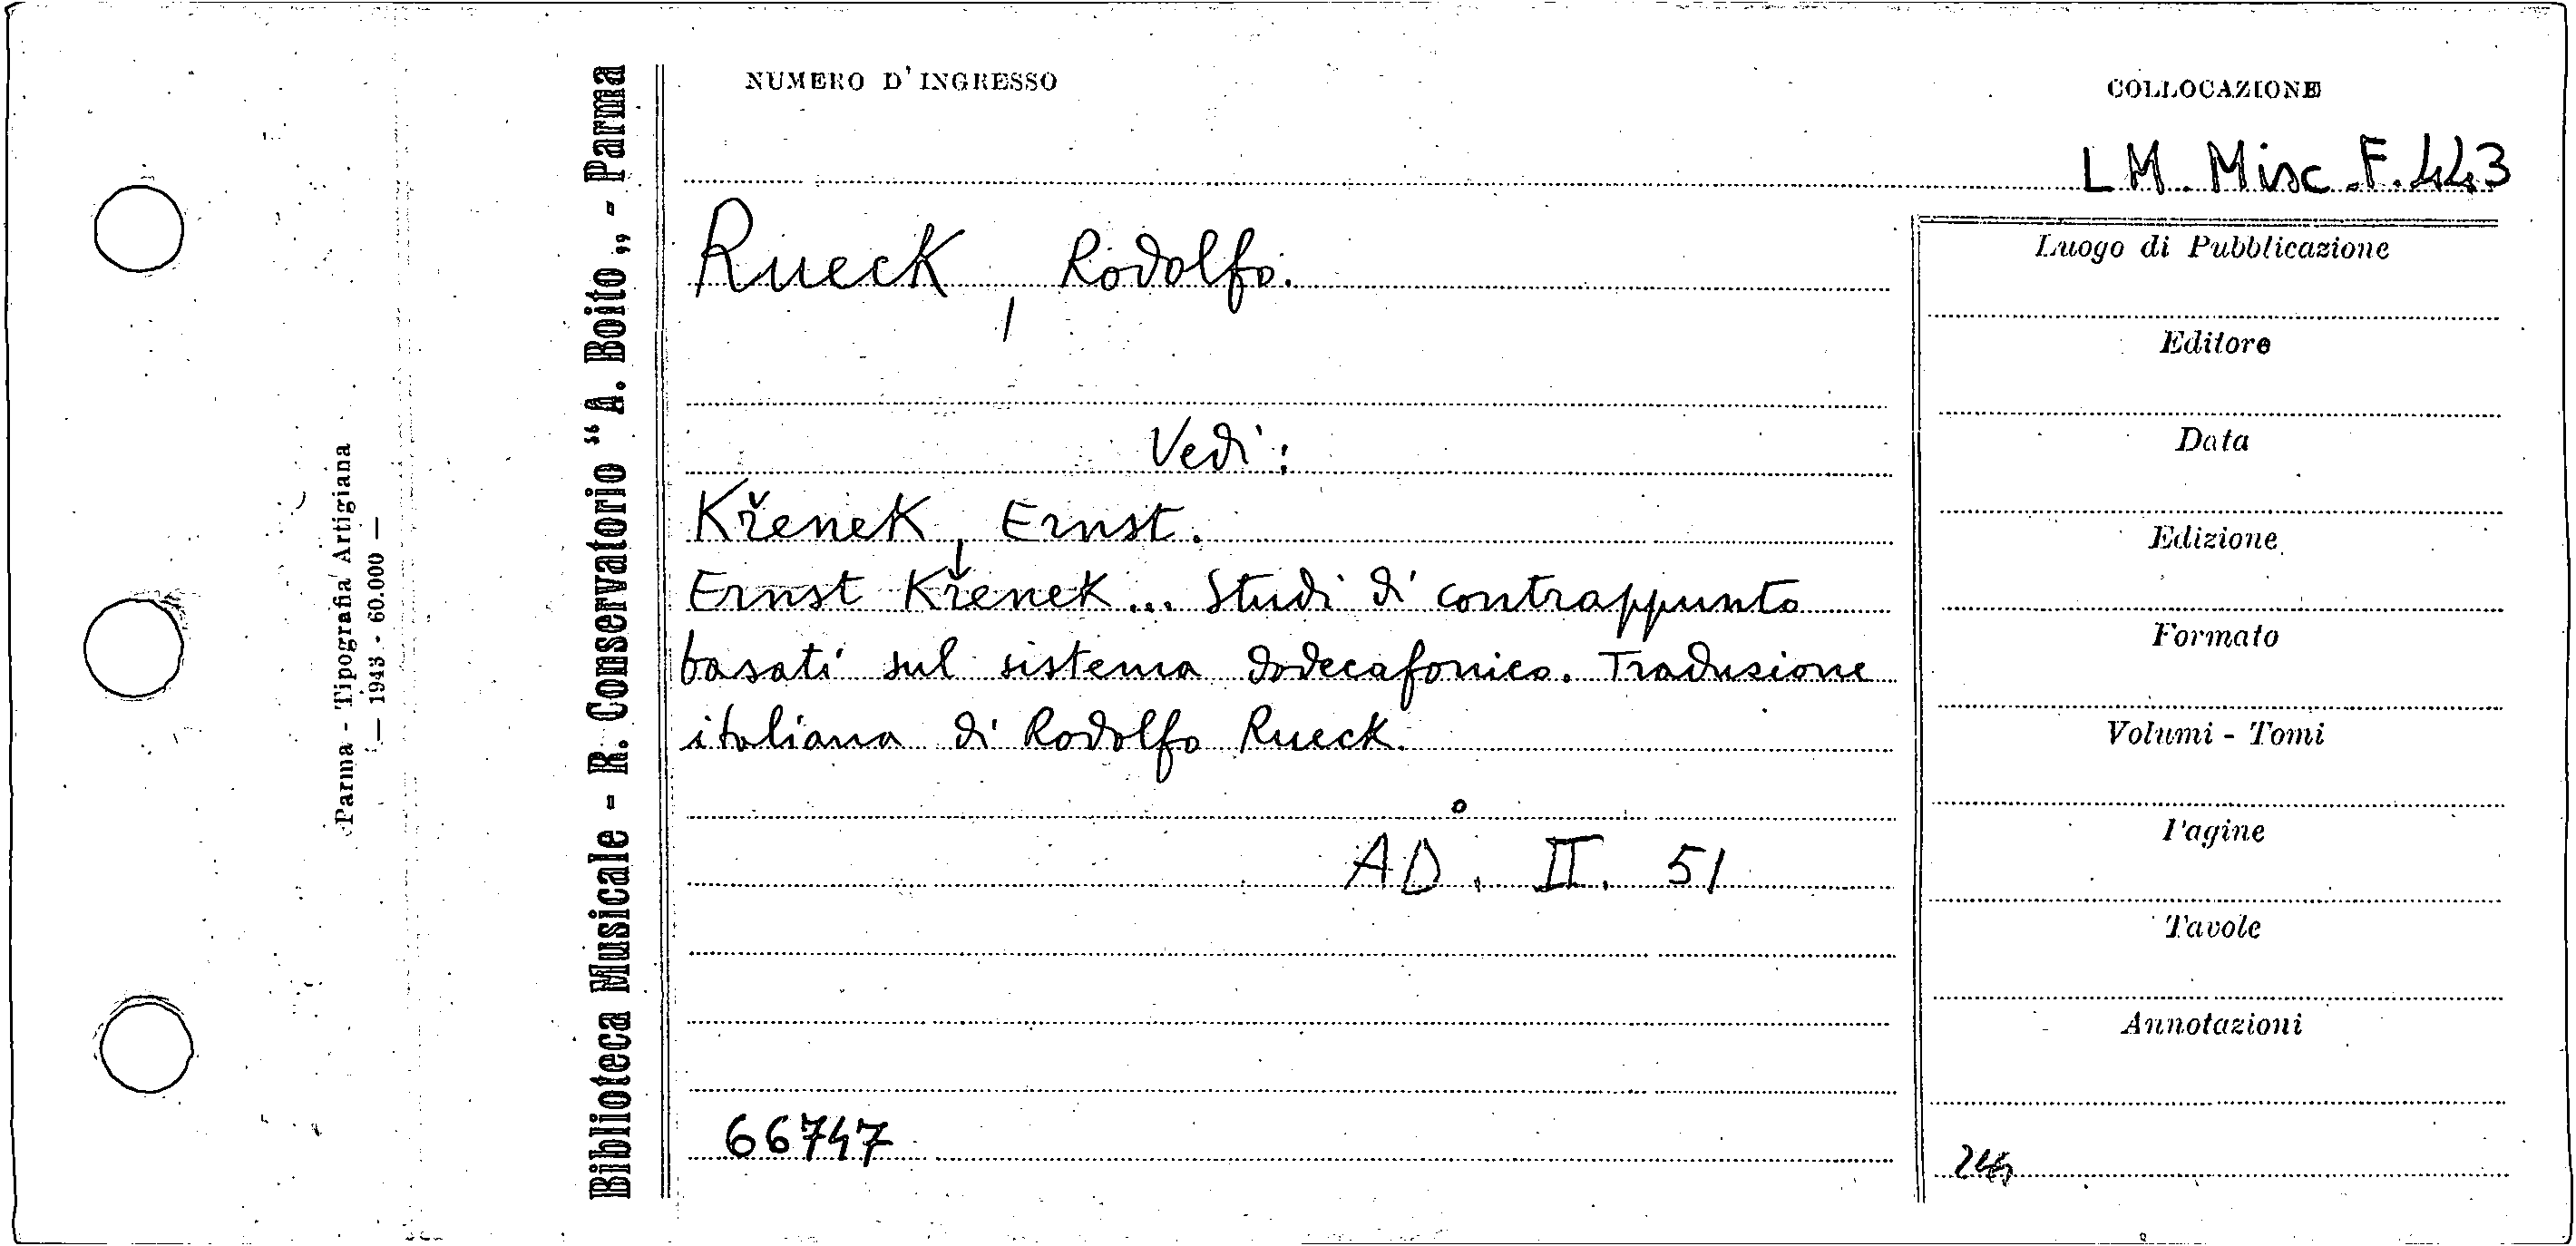 NUMERO D'INGRESSO
COLLOCAZIONE
LM. Misc. F. 443
Rueck, Rodolfo.
Vedi:
Křenek, Ernst.
Ernst Křenek... Studi di contrappunto
basati sul sistema dodecafonico. Traduzione
italiana di Rodolfo Rueck.
AD. II. 51
66747
Luogo di Pubblicazione
Editore
Data
Edizione
Formato
Volumi - Tomi
Pagine
Tavole
Annotazioni
Biblioteca Musicale - R. Conservatorio “A. Boito„ - Parma
Parma - Tipografia Artigiana
— 1943 - 60.000 —